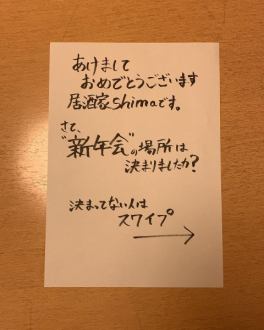 あけまして
おめでとうございます
居酒家shimaです。
さて、
"新年会"の場所は
決まりましたか?
決まってない人は
スワイプ
→